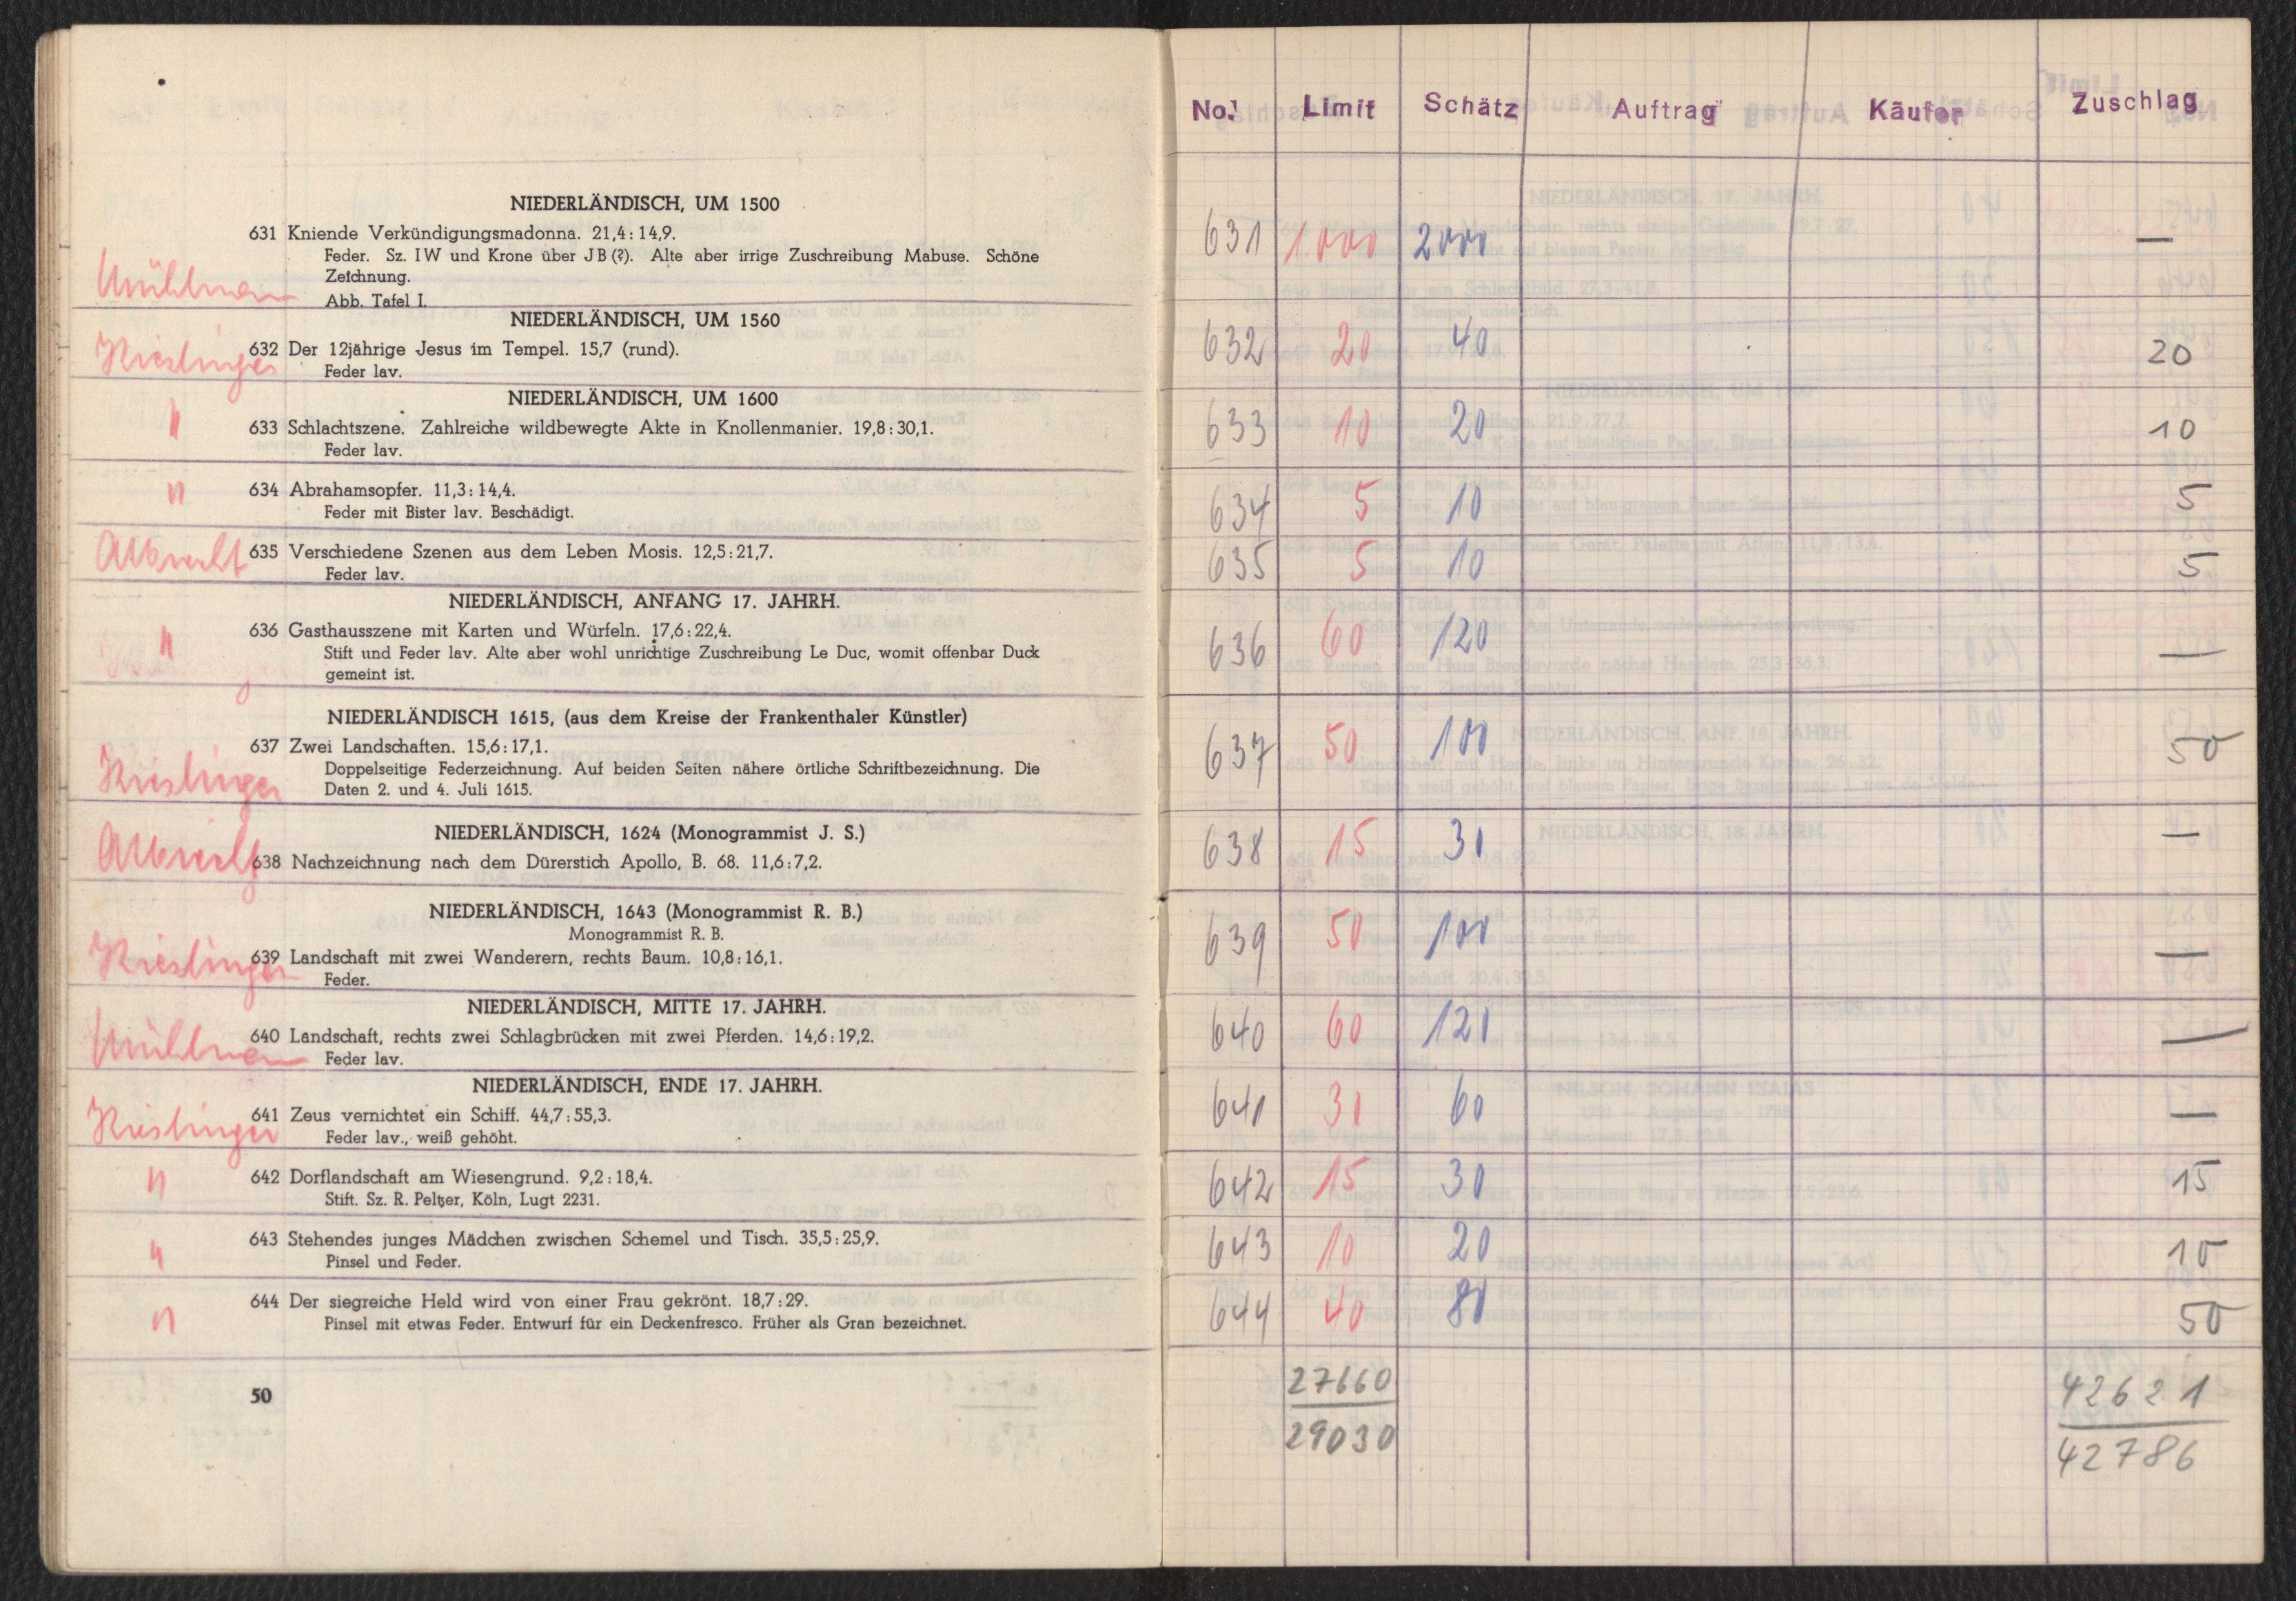 NIEDERLÄNDISCH, UM 1500
631 Kniende Verkündigungsmadonna. 21,4:14,9.
Feder. Sz. IW und Krone über JB (?). Alte aber irrige Zuschreibung Mabuse. Schöne
Zeichnung.
Abb. Tafel I.
NIEDERLÄNDISCH, UM 1560
Kieslinger
632 Der 12jährige Jesus im Tempel. 15,7 (rund).
Feder lav.
NIEDERLÄNDISCH, UM 1600
"
633 Schlachtszene. Zahlreiche wildbewegte Akte in Knollenmanier. 19,8:30,1.
Feder lav.
"
634 Abrahamsopfer. 11,3:14,4.
Feder mit Bister lav. Beschädigt.
Albrecht
635 Verschiedene Szenen aus dem Leben Mosis. 12,5:21,7.
Feder lav.
NIEDERLÄNDISCH, ANFANG 17. JAHRH.
"
636 Gasthausszene mit Karten und Würfeln. 17,6:22,4.
Stift und Feder lav. Alte aber wohl unrichtige Zuschreibung Le Duc, womit offenbar Duck
gemeint ist.
NIEDERLÄNDISCH 1615, (aus dem Kreise der Frankenthaler Künstler)
637 Zwei Landschaften. 15,6:17,1.
Kieslinger
Doppelseitige Federzeichnung. Auf beiden Seiten nähere örtliche Schriftbezeichnung. Die
Daten 2. und 4. Juli 1615.
NIEDERLÄNDISCH, 1624 (Monogrammist J. S.)
Albrecht
638 Nachzeichnung nach dem Dürerstich Apollo, B. 68. 11,6:7,2.
NIEDERLÄNDISCH, 1643 (Monogrammist R. B.)
Monogrammist R. B.
Kieslinger
639 Landschaft mit zwei Wanderern, rechts Baum. 10,8:16,1.
Feder.
NIEDERLÄNDISCH, MITTE 17. JAHRH.
640 Landschaft, rechts zwei Schlagbrücken mit zwei Pferden. 14,6:19,2.
Feder lav.
NIEDERLÄNDISCH, ENDE 17. JAHRH.
Kieslinger
641 Zeus vernichtet ein Schiff. 44,7:55,3.
Feder lav., weiß gehöht.
"
642 Dorflandschaft am Wiesengrund. 9,2:18,4.
Stift. Sz. R. Peltzer, Köln, Lugt 2231.
"
643 Stehendes junges Mädchen zwischen Schemel und Tisch. 35,5:25,9.
Pinsel und Feder.
"
644 Der siegreiche Held wird von einer Frau gekrönt. 18,7:29.
Pinsel mit etwas Feder. Entwurf für ein Deckenfresco. Früher als Gran bezeichnet.
50
No. Limit Schätz Auftrag Käufer Zuschlag
631 1.000 2000 —
632 20 40 20
633 10 20 10
634 5 10 5
635 5 10 5
636 60 120 —
637 50 100 50
638 15 30 —
639 50 100 —
640 60 120 —
641 30 60 —
642 15 30 15
643 10 20 10
644 40 80 50
27660 42621
29030 42786